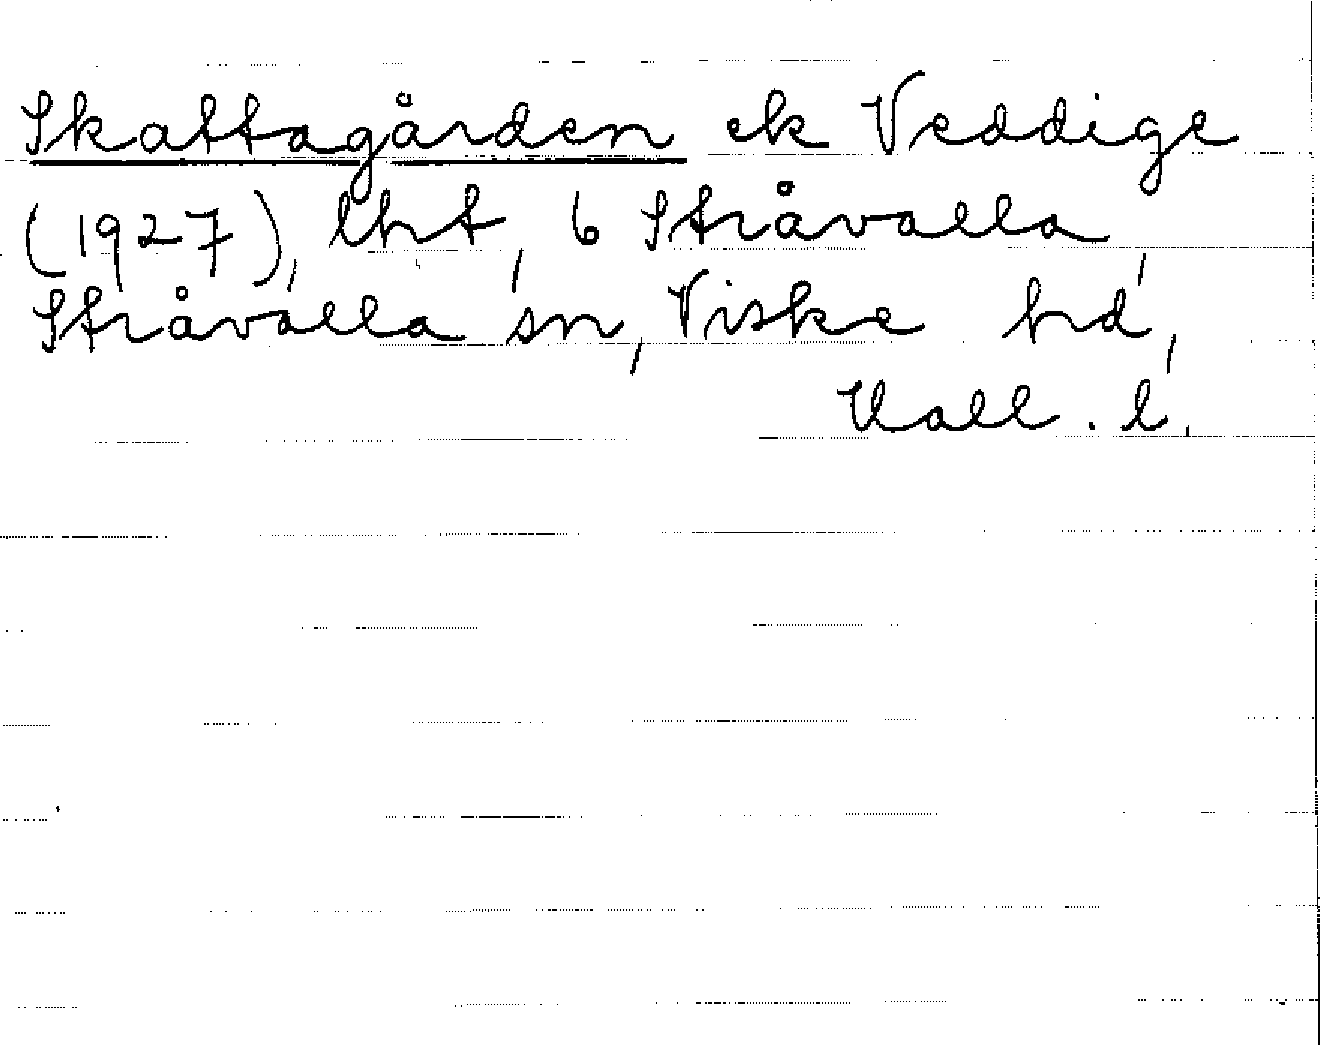 Skattagården ek Veddige
(1927), lht, 6 Stråvalla,
Stråvalla sn, Viske hd,
Hall. l.